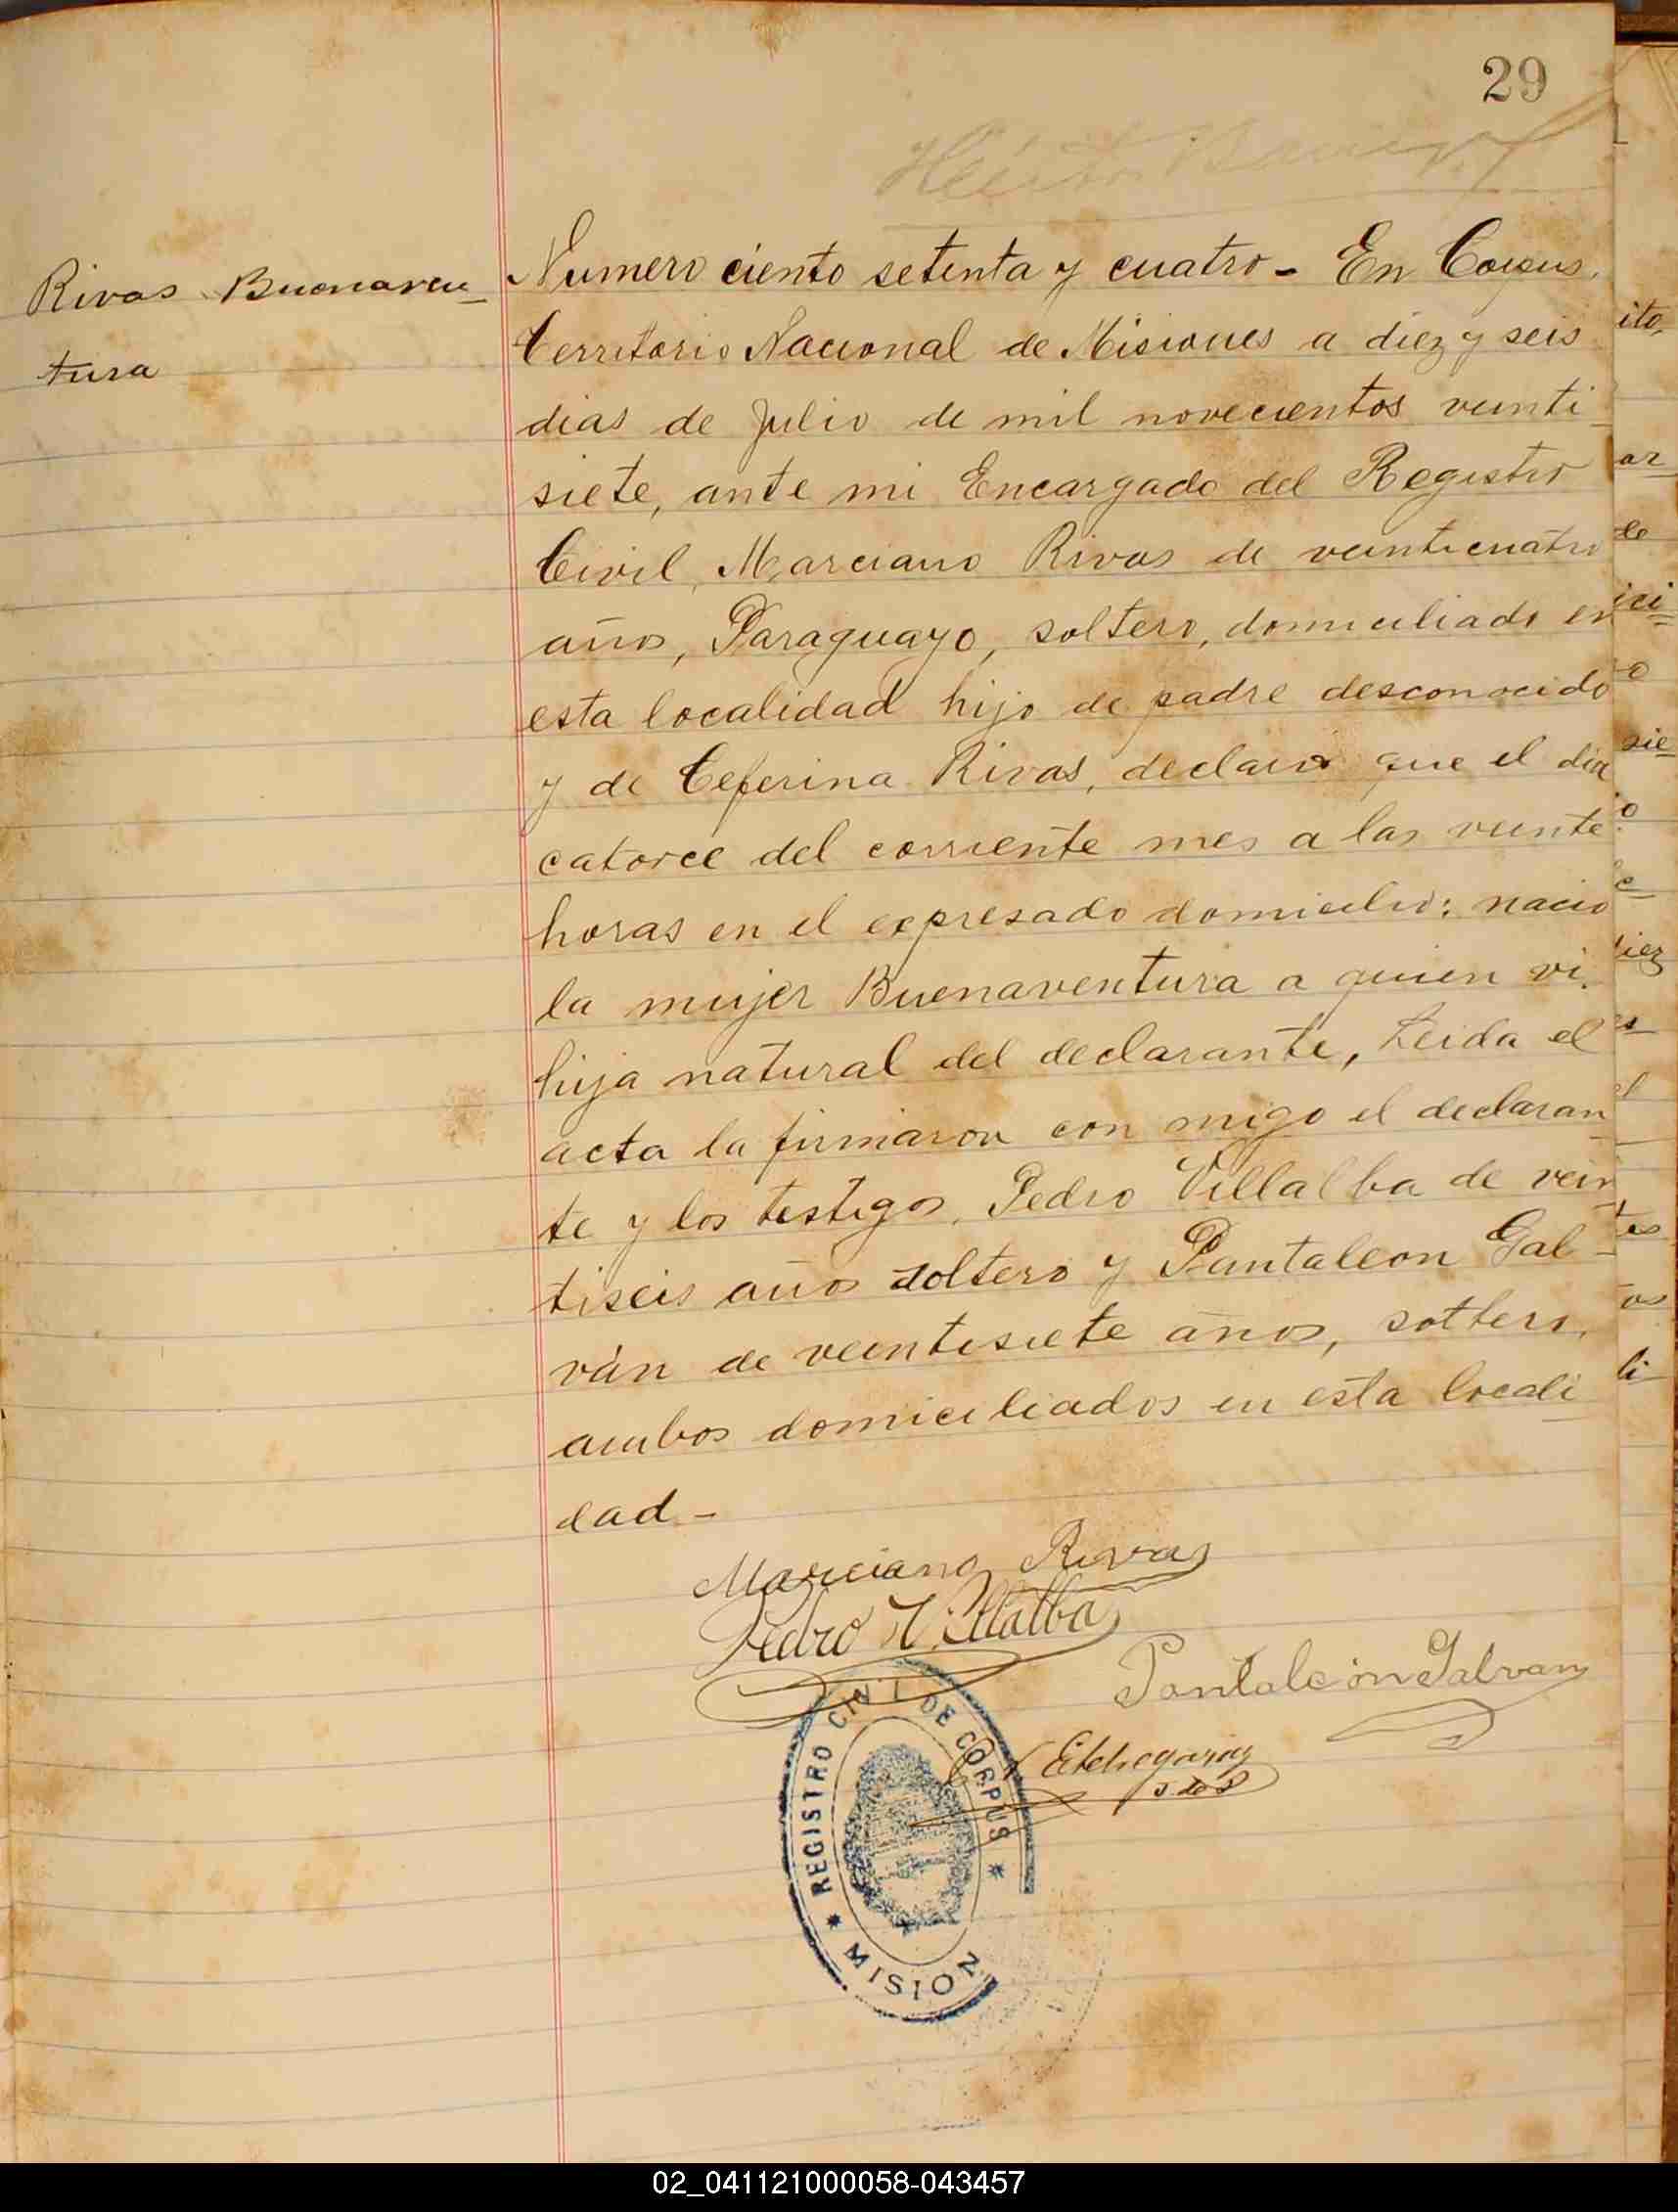 29
Rivas Buenaven-
tura
Numero ciento setenta y cuatro - En Corpus,
Territorio Nacional de Misiones a diez y seis
dias de Julio de mil novecientos veinti-
siete, ante mi Encargado del Registro
Civil, Marciano Rivas de veinticuatro
años, Paraguayo, soltero, domiciliado en
esta localidad hijo de padre desconocido
y de Ceferina Rivas, declaro que el dia
catorce del corriente mes a las veinte
horas en el expresado domicilio: nacio
la mujer Buenaventura a quien vi.
hija natural del declarante, Leida el
acta la firmaron con migo el declaran-
te y los testigos, Pedro Villalba de vein-
tiseis años soltero y Pantaleon Gal-
ván de veintisiete años, soltero,
ambos domiciliados en esta locali-
dad -
Marciano Rivas
Pedro Villalba
Pantaleón Galvan
Etchegaray
J de P
REGISTRO CIVIL DE CORPUS
MISION
02_041121000058-043457